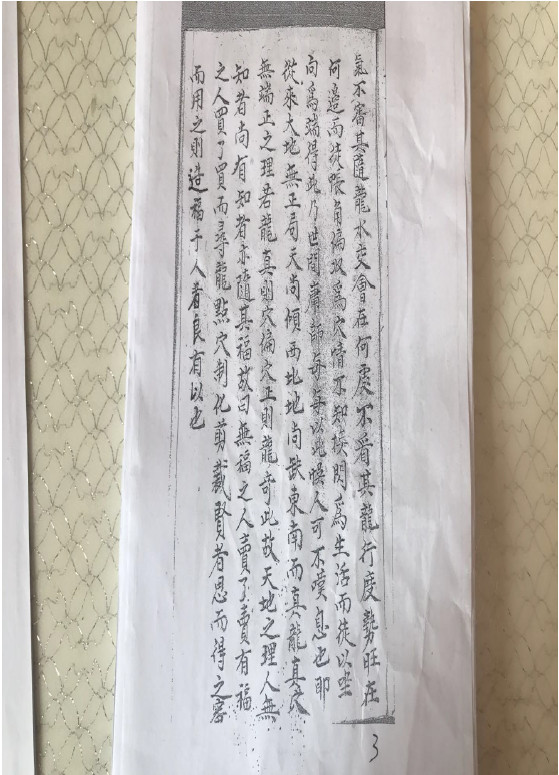 氣不審其隨龍水交會在何處不看其龍行度勢旺在
何邊而徒張角偏取爲穴情不知梭閃爲生活而徒以坐
向爲端得此乃世間庸師每每以此悮人可不嘆息也卽
從來大地無正局天尚傾西北地尚缺東南而真龍真穴
無端正之理若龍真明穴偏穴正則龍奇此故天地之理人無
知者尚有知者亦隨其福故曰無福之人賣了賣有福
之人買了買而尋龍點穴制化剪裁賢者思而得之審
而用之則造福于人者良有以也
3